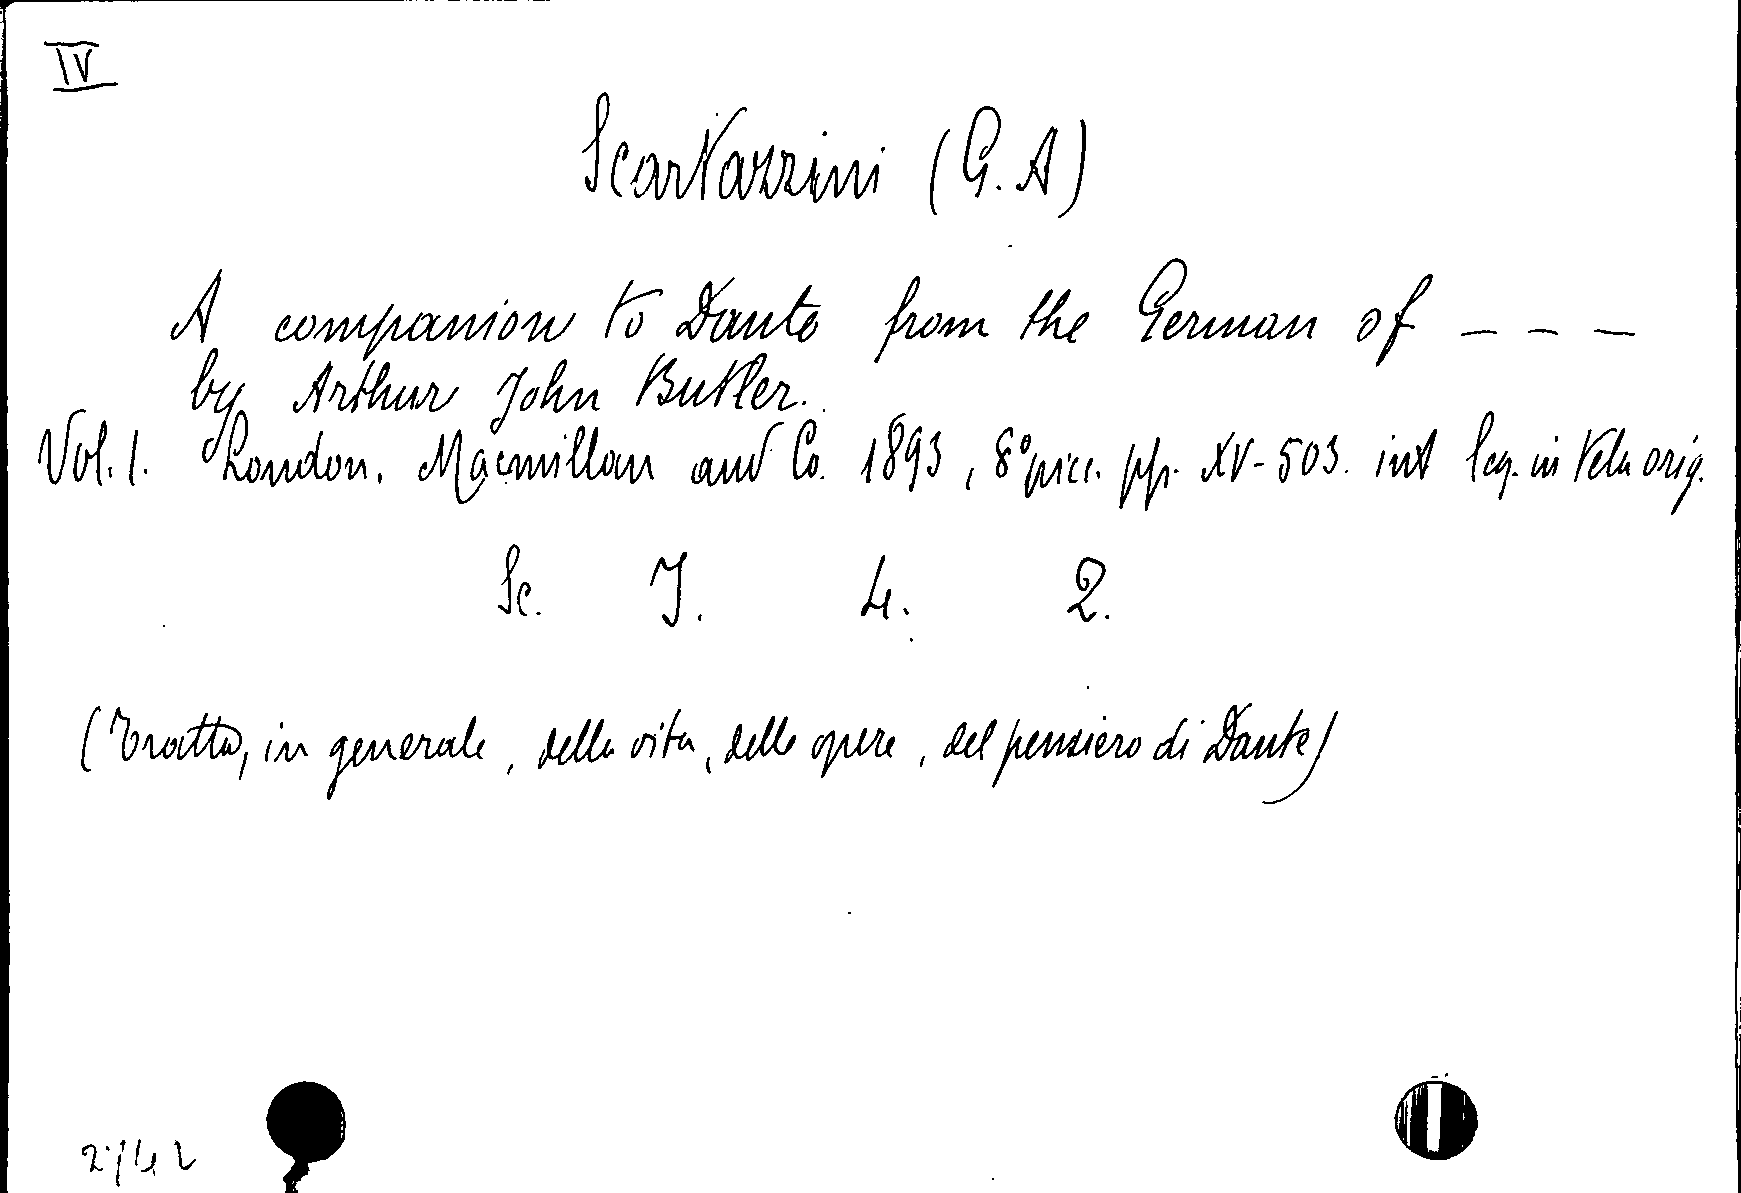 IV
Scartazzini (G. A)
A companion to Dante from the German of - - -
by Arthur John Butler.
Vol. I. London. Macmillan and Co. 1893, 8° picc. pp. XV-503. int leg. in tela orig.
Sc. I. 4. 2.
(Tratta, in generale, della vita, delle opere, del pensiero di Dante)